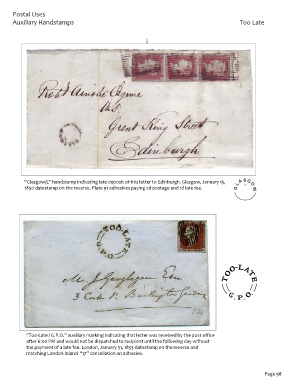 Postal Uses
Auxiliary Handstamps
Too Late
Great King Street
Edinburgh
"Glasgow L" handstamp indicating late deposit of this letter to Edinburgh. Glasgow, January 15,
1850 datestamp on the reverse. Plate 91 adhesives paying 2d postage and 1d late fee.
GLASGOW
TOO-LATE
G.P.O.
TOO-LATE
G.P.O.
"Too-Late / G.P.O." auxiliary marking indicating that letter was received by the post office
after 6:00 PM and would not be dispatched to recipient until the following day without
the payment of a late fee. London, January 31, 1853 datestamp on the reverse and
matching London Inland "17" cancellation on adhesive.
Page 98